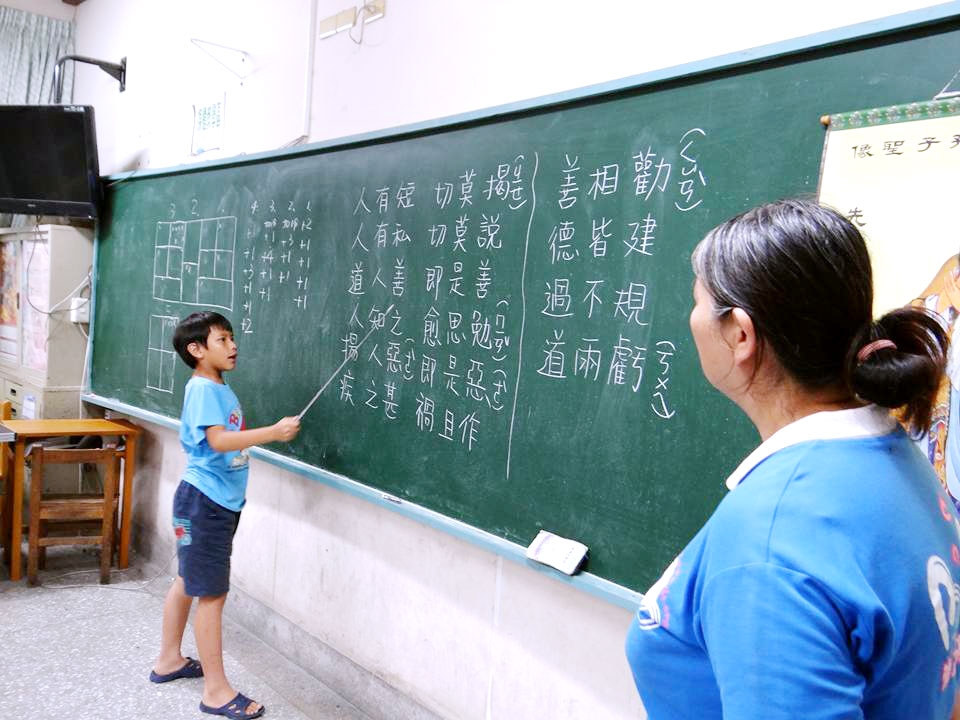 人有短 切莫揭(ㄐㄧㄝ)
人有私 切莫說
道人善 即是善
人知之 愈思勉(ㄇㄧㄢˇ)
揚人惡(ㄜˋ) 即是惡(ㄜˋ)
疾之甚 禍且作
善相勸(ㄑㄩㄢˋ)
德皆建
過不規
道兩虧(ㄎㄨㄟ)
3 2
4 3 2 1
像聖子
先